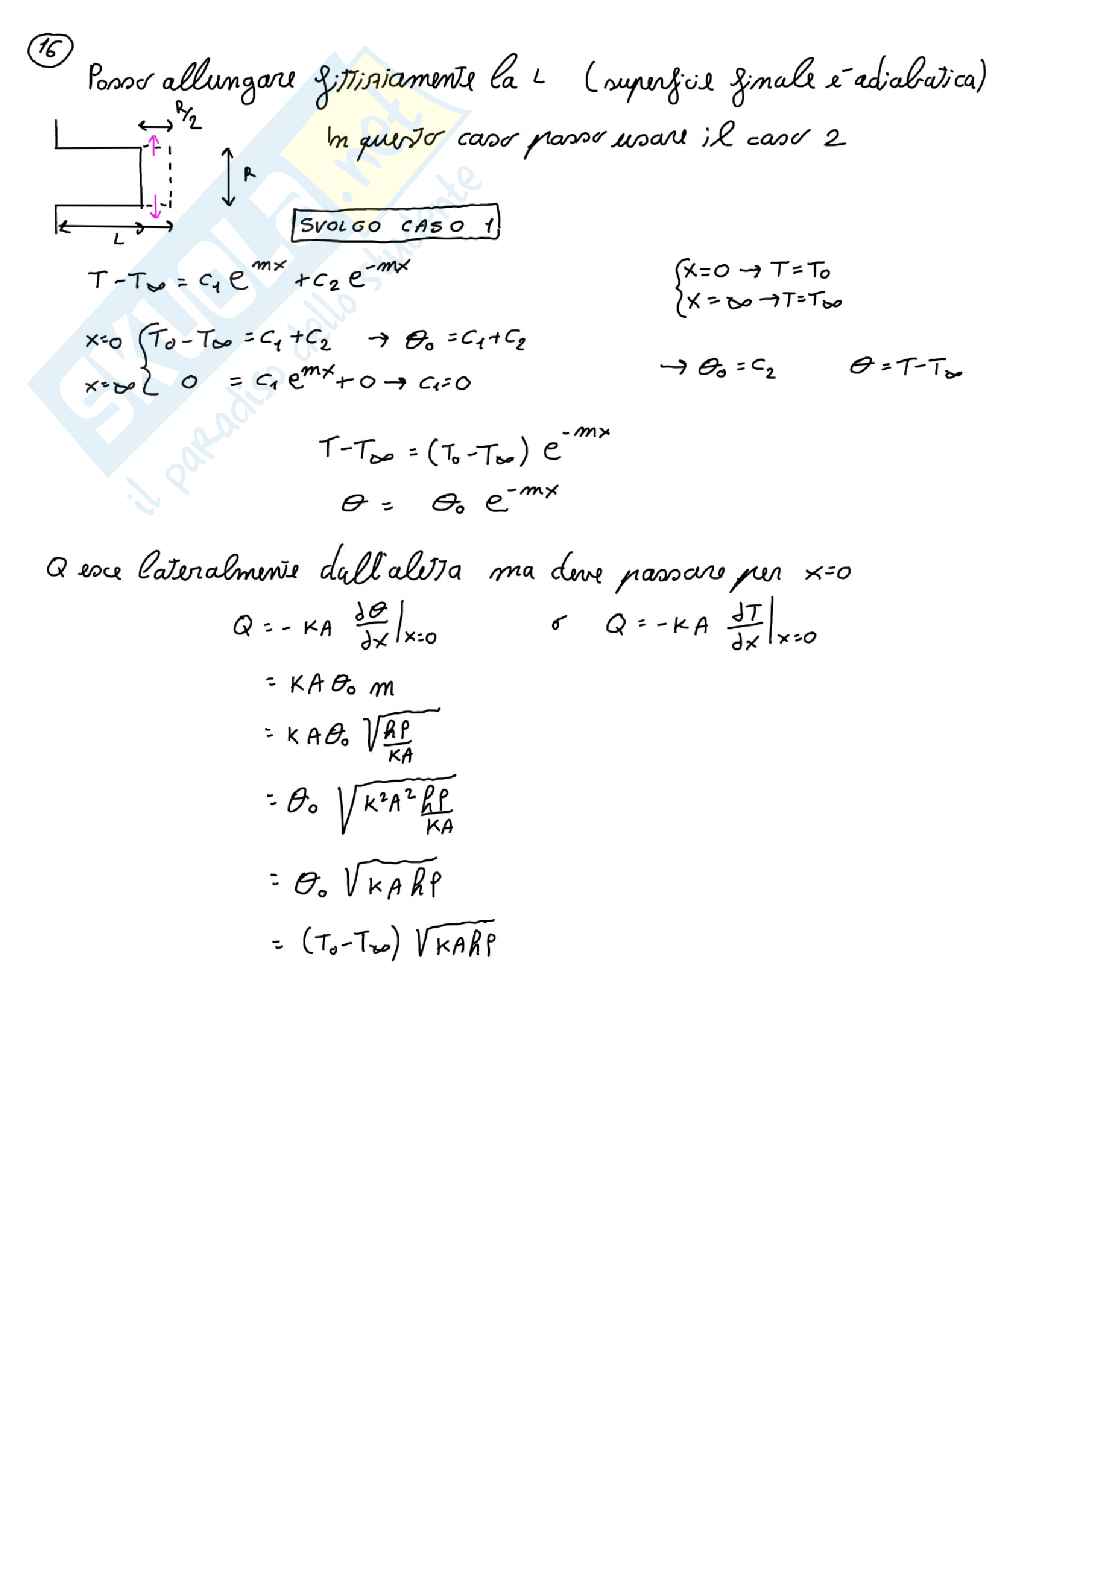 16
Posso allungare fittiziamente la L (superficie finale è adiabatica)
R/2
In questo caso posso usare il caso 2
R
L
SVOLGO CASO 1
T-T∞ = c₁ e^mx + c₂ e^-mx
{x=0 → T=T₀
{x=∞ → T=T∞
x=0 {T₀-T∞ = c₁+c₂ → θ₀ = c₁+c₂
x=∞ { 0 = c₁ e^mx + 0 → c₁=0
→ θ₀ = c₂ θ = T-T∞
T-T∞ = (T₀-T∞) e^-mx
θ = θ₀ e^-mx
Q esce lateralmente dall'aletta ma deve passare per x=0
Q = - KA dθ/dx |x=0 o Q = -KA dT/dx |x=0
= KA θ₀ m
= KA θ₀ √(hP/KA)
= θ₀ √(K²A² hP/KA)
= θ₀ √(KAhP)
= (T₀-T∞) √(KAhP)
SKUOLA.net
il paradiso dello studente